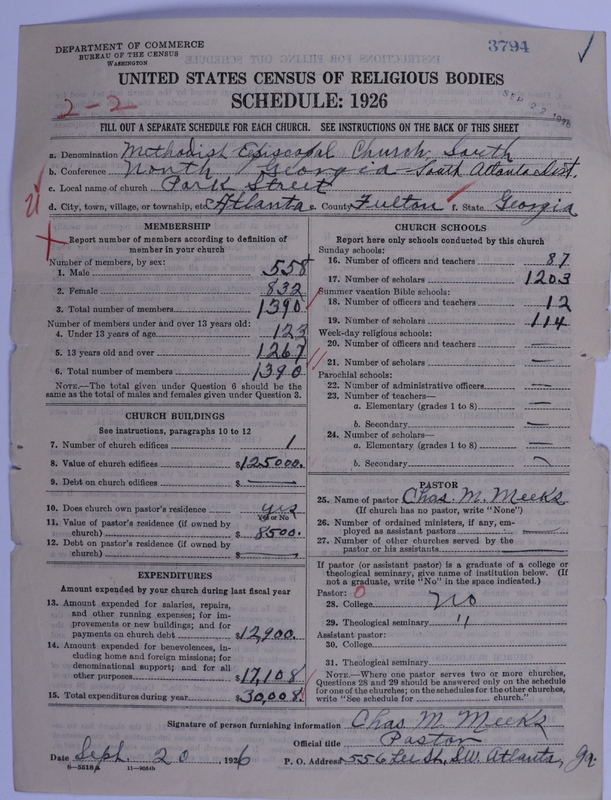 3794
DEPARTMENT OF COMMERCE
BUREAU OF THE CENSUS
WASHINGTON
UNITED STATES CENSUS OF RELIGIOUS BODIES
SCHEDULE: 1926
2-2
SEP 22 1926
FILL OUT A SEPARATE SCHEDULE FOR EACH CHURCH. SEE INSTRUCTIONS ON THE BACK OF THIS SHEET
a. Denomination Methodist Episcopal Church, South
b. Conference North Georgia - South Atlanta Dist.
c. Local name of church Park Street
d. City, town, village, or township, etc. Atlanta e. County Fulton f. State Georgia
MEMBERSHIP
Report number of members according to definition of member in your church
Number of members, by sex:
1. Male 558
2. Female 832
3. Total number of members 1390
Number of members under and over 13 years old:
4. Under 13 years of age 123
5. 13 years old and over 1267
6. Total number of members 1390
NOTE.—The total given under Question 6 should be the same as the total of males and females given under Question 3.
CHURCH BUILDINGS
See instructions, paragraphs 10 to 12
7. Number of church edifices 1
8. Value of church edifices $125000.
9. Debt on church edifices $ —
10. Does church own pastor's residence yes
Yes or No
11. Value of pastor's residence (if owned by church) $ 8500.
12. Debt on pastor's residence (if owned by church) $ —
EXPENDITURES
Amount expended by your church during last fiscal year
13. Amount expended for salaries, repairs, and other running expenses; for improvements or new buildings; and for payments on church debt $12,900.
14. Amount expended for benevolences, including home and foreign missions; for denominational support; and for all other purposes $17,108
15. Total expenditures during year $30,008.
CHURCH SCHOOLS
Report here only schools conducted by this church
Sunday schools:
16. Number of officers and teachers 87
17. Number of scholars 1203
Summer vacation Bible schools:
18. Number of officers and teachers 12
19. Number of scholars 114
Week-day religious schools:
20. Number of officers and teachers —
21. Number of scholars —
Parochial schools:
22. Number of administrative officers —
23. Number of teachers—
a. Elementary (grades 1 to 8) —
b. Secondary —
24. Number of scholars—
a. Elementary (grades 1 to 8) —
b. Secondary
PASTOR
25. Name of pastor Chas. M. Meeks
(If church has no pastor, write "None")
26. Number of ordained ministers, if any, employed as assistant pastors —
27. Number of other churches served by the pastor or his assistants —
If pastor (or assistant pastor) is a graduate of a college or theological seminary, give name of institution below. (If not a graduate, write "No" in the space indicated.)
Pastor:
28. College No
29. Theological seminary "
Assistant pastor:
30. College
31. Theological seminary
NOTE.—Where one pastor serves two or more churches, Questions 28 and 29 should be answered only on the schedule for one of the churches; on the schedules for the other churches, write "See schedule for ______ church."
Signature of person furnishing information Chas M. Meeks
Official title Pastor
Date Sept. 20, 1926 P. O. Address 556 Lee St., S.W. Atlanta, Ga.
8—5518a 11—9054b